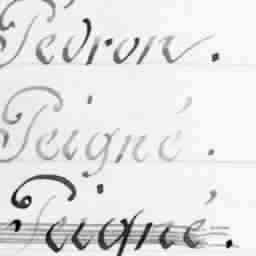 Pédron.
Peigné.
Peigné.